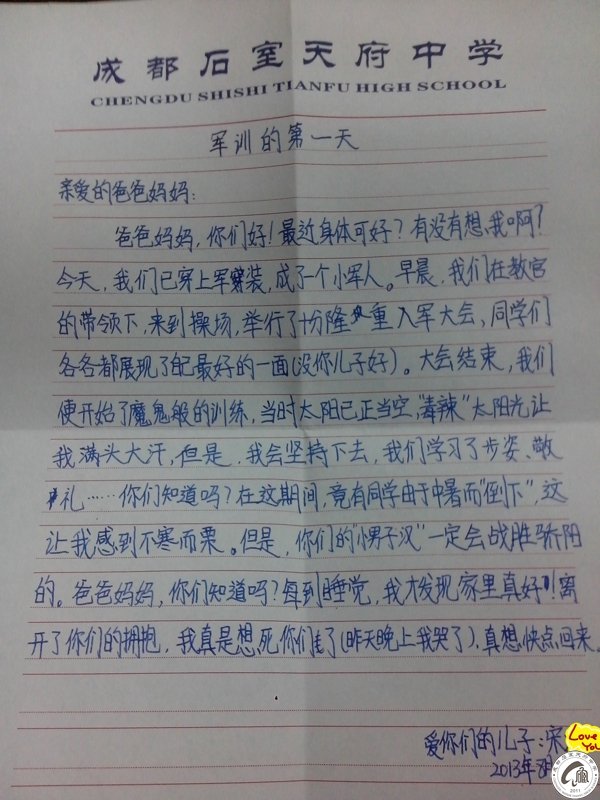 成都石室天府中学
CHENGDU SHISHI TIANFU HIGH SCHOOL
军训的第一天
亲爱的爸爸妈妈：
爸爸妈妈，你们好！最近身体可好？有没有想我啊？
今天，我们已穿上军装，成了个小军人。早晨，我们在教官
的带领下，来到操场，举行了十分隆重入军大会、同学们
各各都展现了自己最好的一面(没你儿子好)。大会结束，我们
便开始了魔鬼般的训练，当时太阳已正当空，“毒辣”太阳光让
我满头大汗，但是，我会坚持下去，我们学习了步姿、敬
礼……你们知道吗？在这期间，竟有同学由于中暑而“倒下”，这
让我感到不寒而栗。但是，你们的“小男子汉”一定会战胜骄阳
的。爸爸妈妈，你们知道吗？每到睡觉，我才发现家里真好！离
开了你们的拥抱，我真是想死你们了(昨天晚上我哭了)，真想快点回来。
爱你们的儿子：宋
Love You
2013年8月
2011